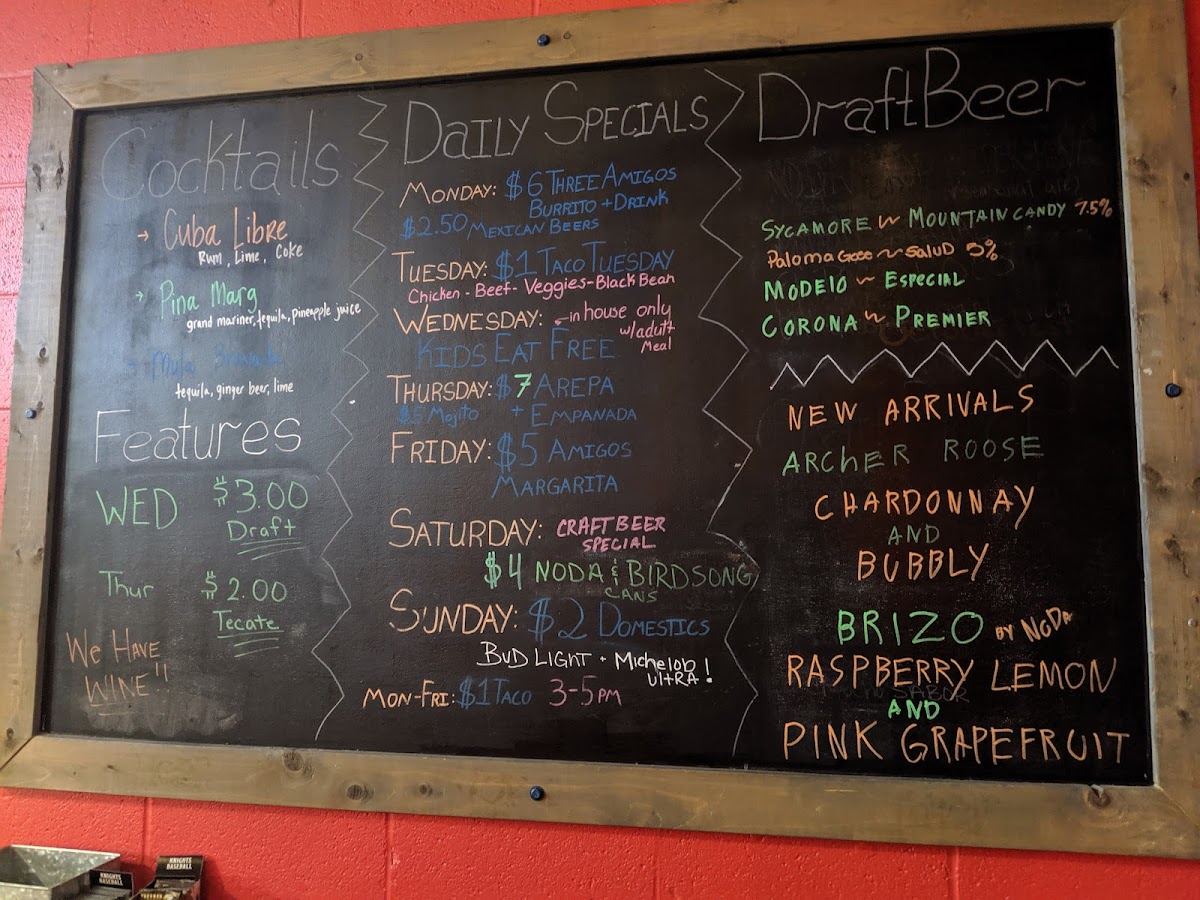 Cocktails
→ Cuba Libre
Rum, Lime, Coke
→ Pina Marg
grand mariner, tequila, pineapple juice
Mula
tequila, ginger beer, lime
Features
WED $3.00
Draft
Thur $2.00
Tecate
We HAVE
WINE!!
DAILY SPECIALS
MONDAY: $6 THREE AMIGOS
BURRITO + DRINK
$2.50 MEXICAN BEERS
TUESDAY: $1 TACO TUESDAY
Chicken - Beef - Veggies - Black Bean
WEDNESDAY: ← in house only
w/adult
Meal
KIDS EAT FREE
THURSDAY: $7 AREPA
$5 Mojito + EMPANADA
FRIDAY: $5 AMIGOS
MARGARITA
SATURDAY: CRAFT BEER
SPECIAL
$4 NODA & BIRDSONG
CANS
SUNDAY: $2 DOMESTICS
BUD LIGHT + Michelob
ULtRA!
MON-FRI: $1 TACO 3-5PM
DraftBeer
SYCAMORE ~ MOUNTAIN CANDY 7.5%
Paloma Gose ~ SaluD 5%
MODElO ~ ESPECIAL
CORONA ~ PREMIER
NEW ARRIVALS
ARCHER ROOSE
CHARDONNAY
AND
BUBBLY
BRIZO BY NODA
RASPBERRY LEMON
AND
PINK GRAPEFRUIT
KNIGHTS
BASEBALL
KNIGHTS
BASEBALL